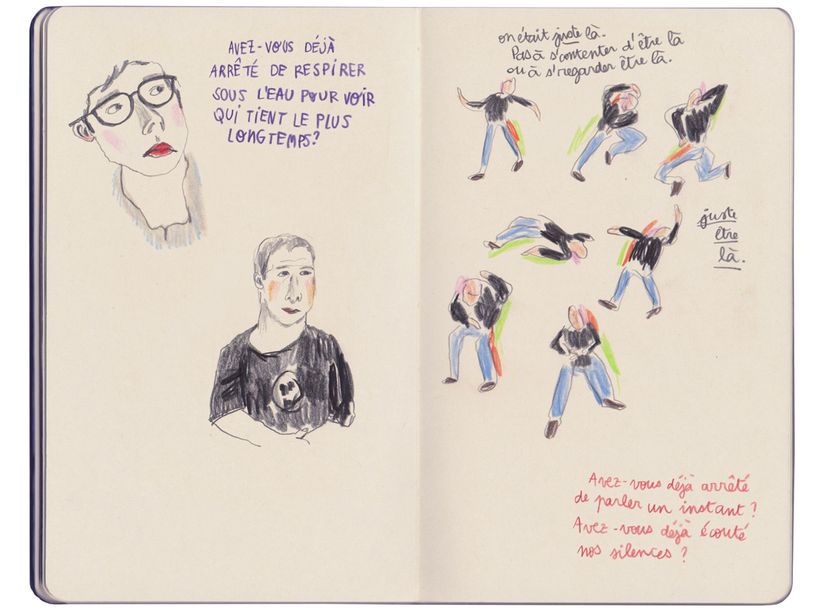 AVEZ-VOUS DÉJÀ
ARRÊTÉ DE RESPIRER
SOUS L'EAU POUR VOIR
QUI TIENT LE PLUS
LONGTEMPS?
on était juste là.
Pas à s'contenter d'être là
ou à s'regarder être là.
juste
être
là.
Avez-vous déjà arrêté
de parler un instant ?
Avez-vous déjà écouté
nos silences ?